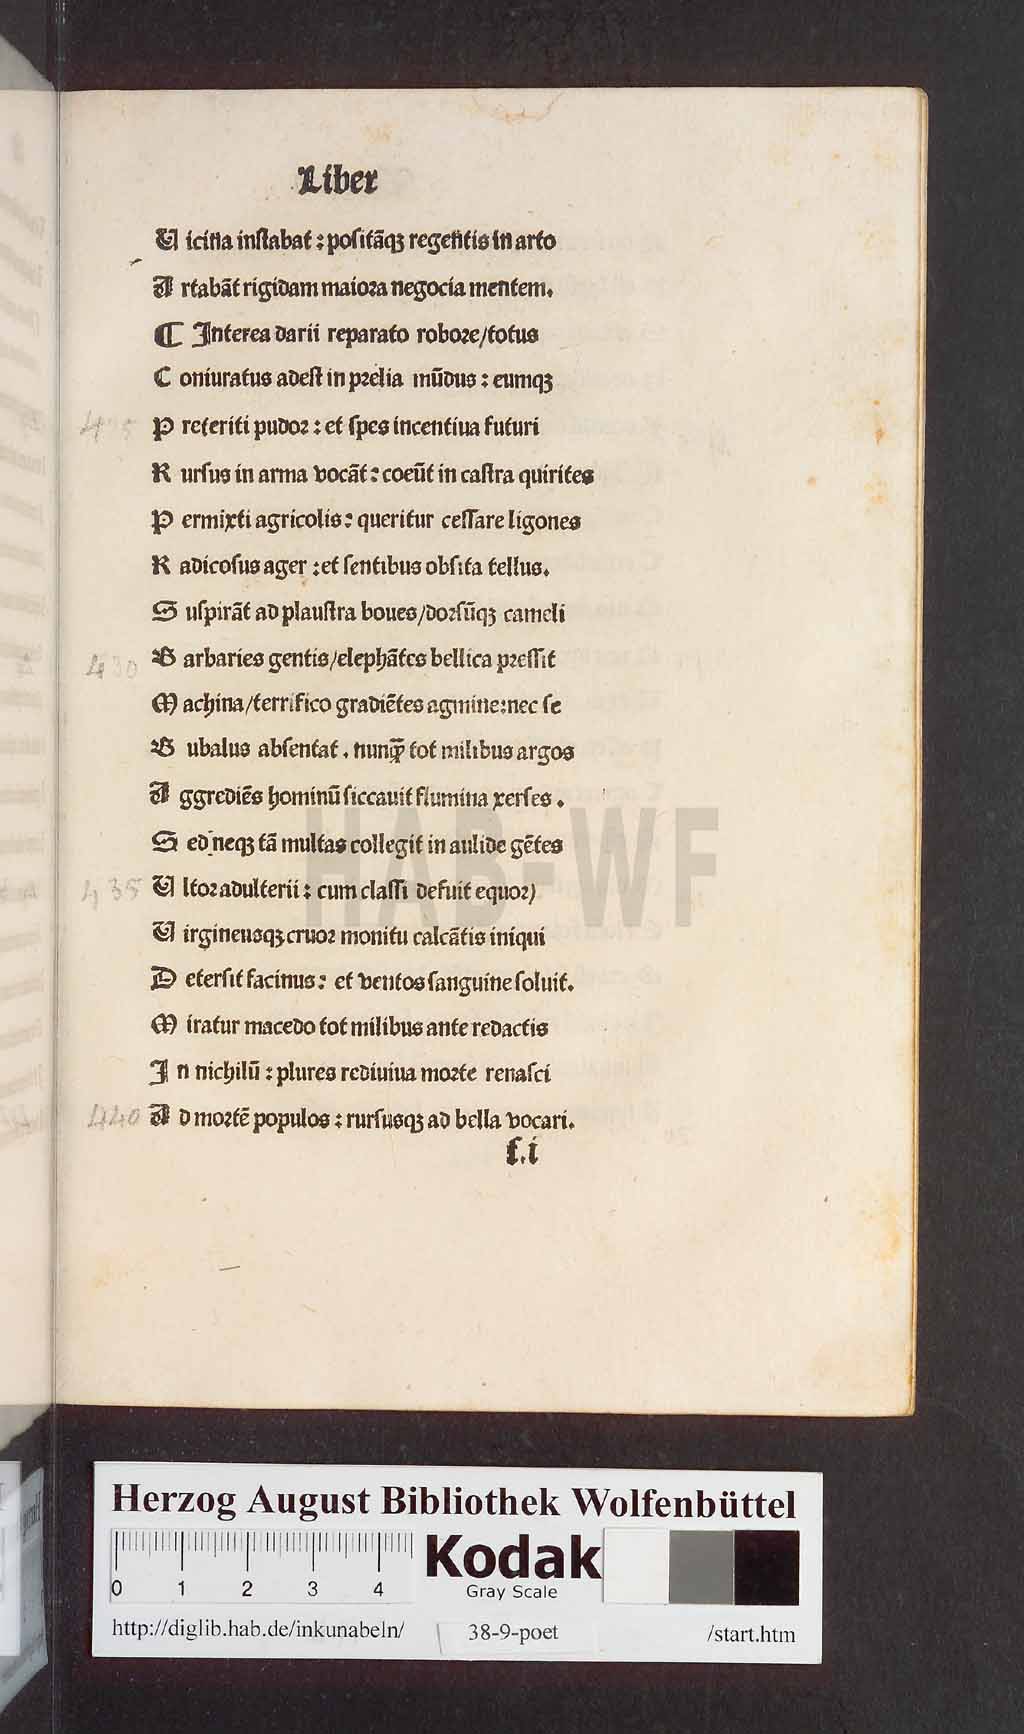 Liber
U icina instabat : positāqʒ regentis in arto
A rtabāt rigidam maiora negocia mentem.
¶ Interea darii reparato robore/totus
C oniuratus adest in prelia mūdus : eumqʒ
425 P reteriti pudor : et spes incentiua futuri
R ursus in arma vocāt : coeūt in castra quirites
P ermixti agricolis : queritur cessare ligones
R adicosus ager : et sentibus obsita tellus.
S uspirāt ad plaustra boues/dorsūqʒ cameli
430 B arbaries gentis/elephātes bellica pressit
M achina/terrifico gradiētes agmine:nec se
B ubalus absentat . nunqꝫ tot milibus argos
A ggrediēs hominū siccauit flumina xerses .
S ed neqʒ tā multas collegit in aulide gētes
435 U ltor adulterii : cum classi defuit equor)
U irgineusqʒ cruor monitu calcātis iniqui
D etersit facinus : et ventos sanguine soluit.
M iratur macedo tot milibus ante redactis
I n nichilū : plures rediuiua morte renasci
440 A d mortē populos : rursusqʒ ad bella vocari.
f.i
HAB-WF
Herzog August Bibliothek Wolfenbüttel
0 1 2 3 4
Kodak
Gray Scale
http://diglib.hab.de/inkunabeln/ 38-9-poet /start.htm